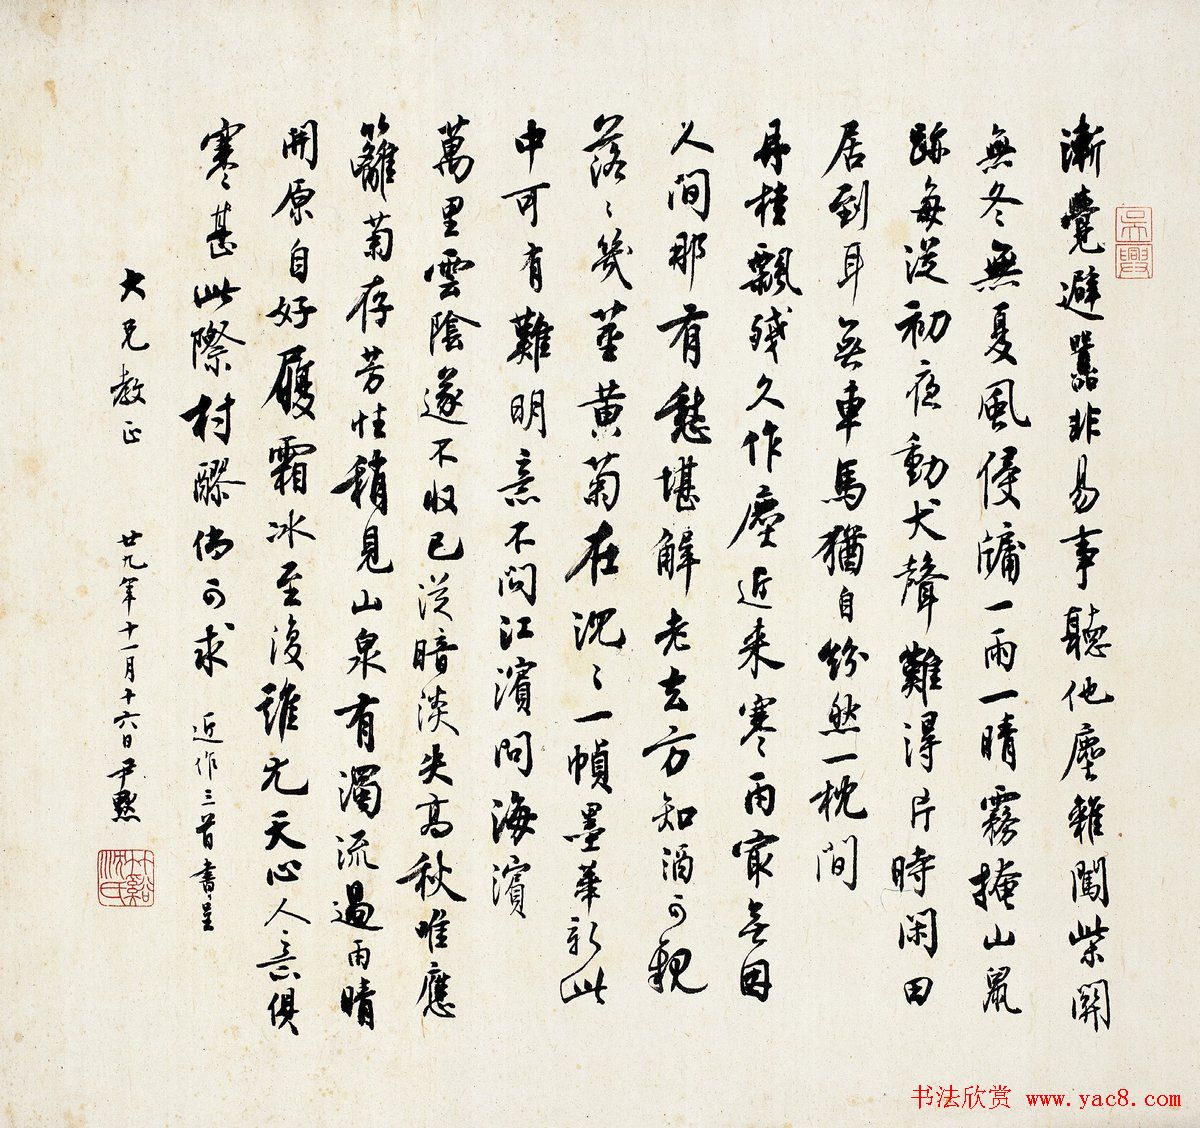 吳興
漸覺避囂非易事聽他塵雜闖柴關
無冬無夏風侵牖一雨一晴霧掩山鼠
跡每從初夜動犬聲難得片時閑田
居到耳無車馬猶自紛然一枕間
丹桂飄殘久作塵近來寒雨寂無因
人間那有愁堪解老去方知酒可親
落落幾莖黃菊在沉沉一幀墨華新此
中可有難明意不問江濱問海濱
萬里雲陰遂不收已從暗淡失高秋唯應
籬菊存芳性稍見山泉有濁流過雨晴
開原自好履霜冰至復誰尤天心人意俱
寒甚此際村醪倘可求 近作三首書呈
大兄教正 廿九年十一月十六日 尹默
竹谿沈氏
书法欣赏 www.yac8.com